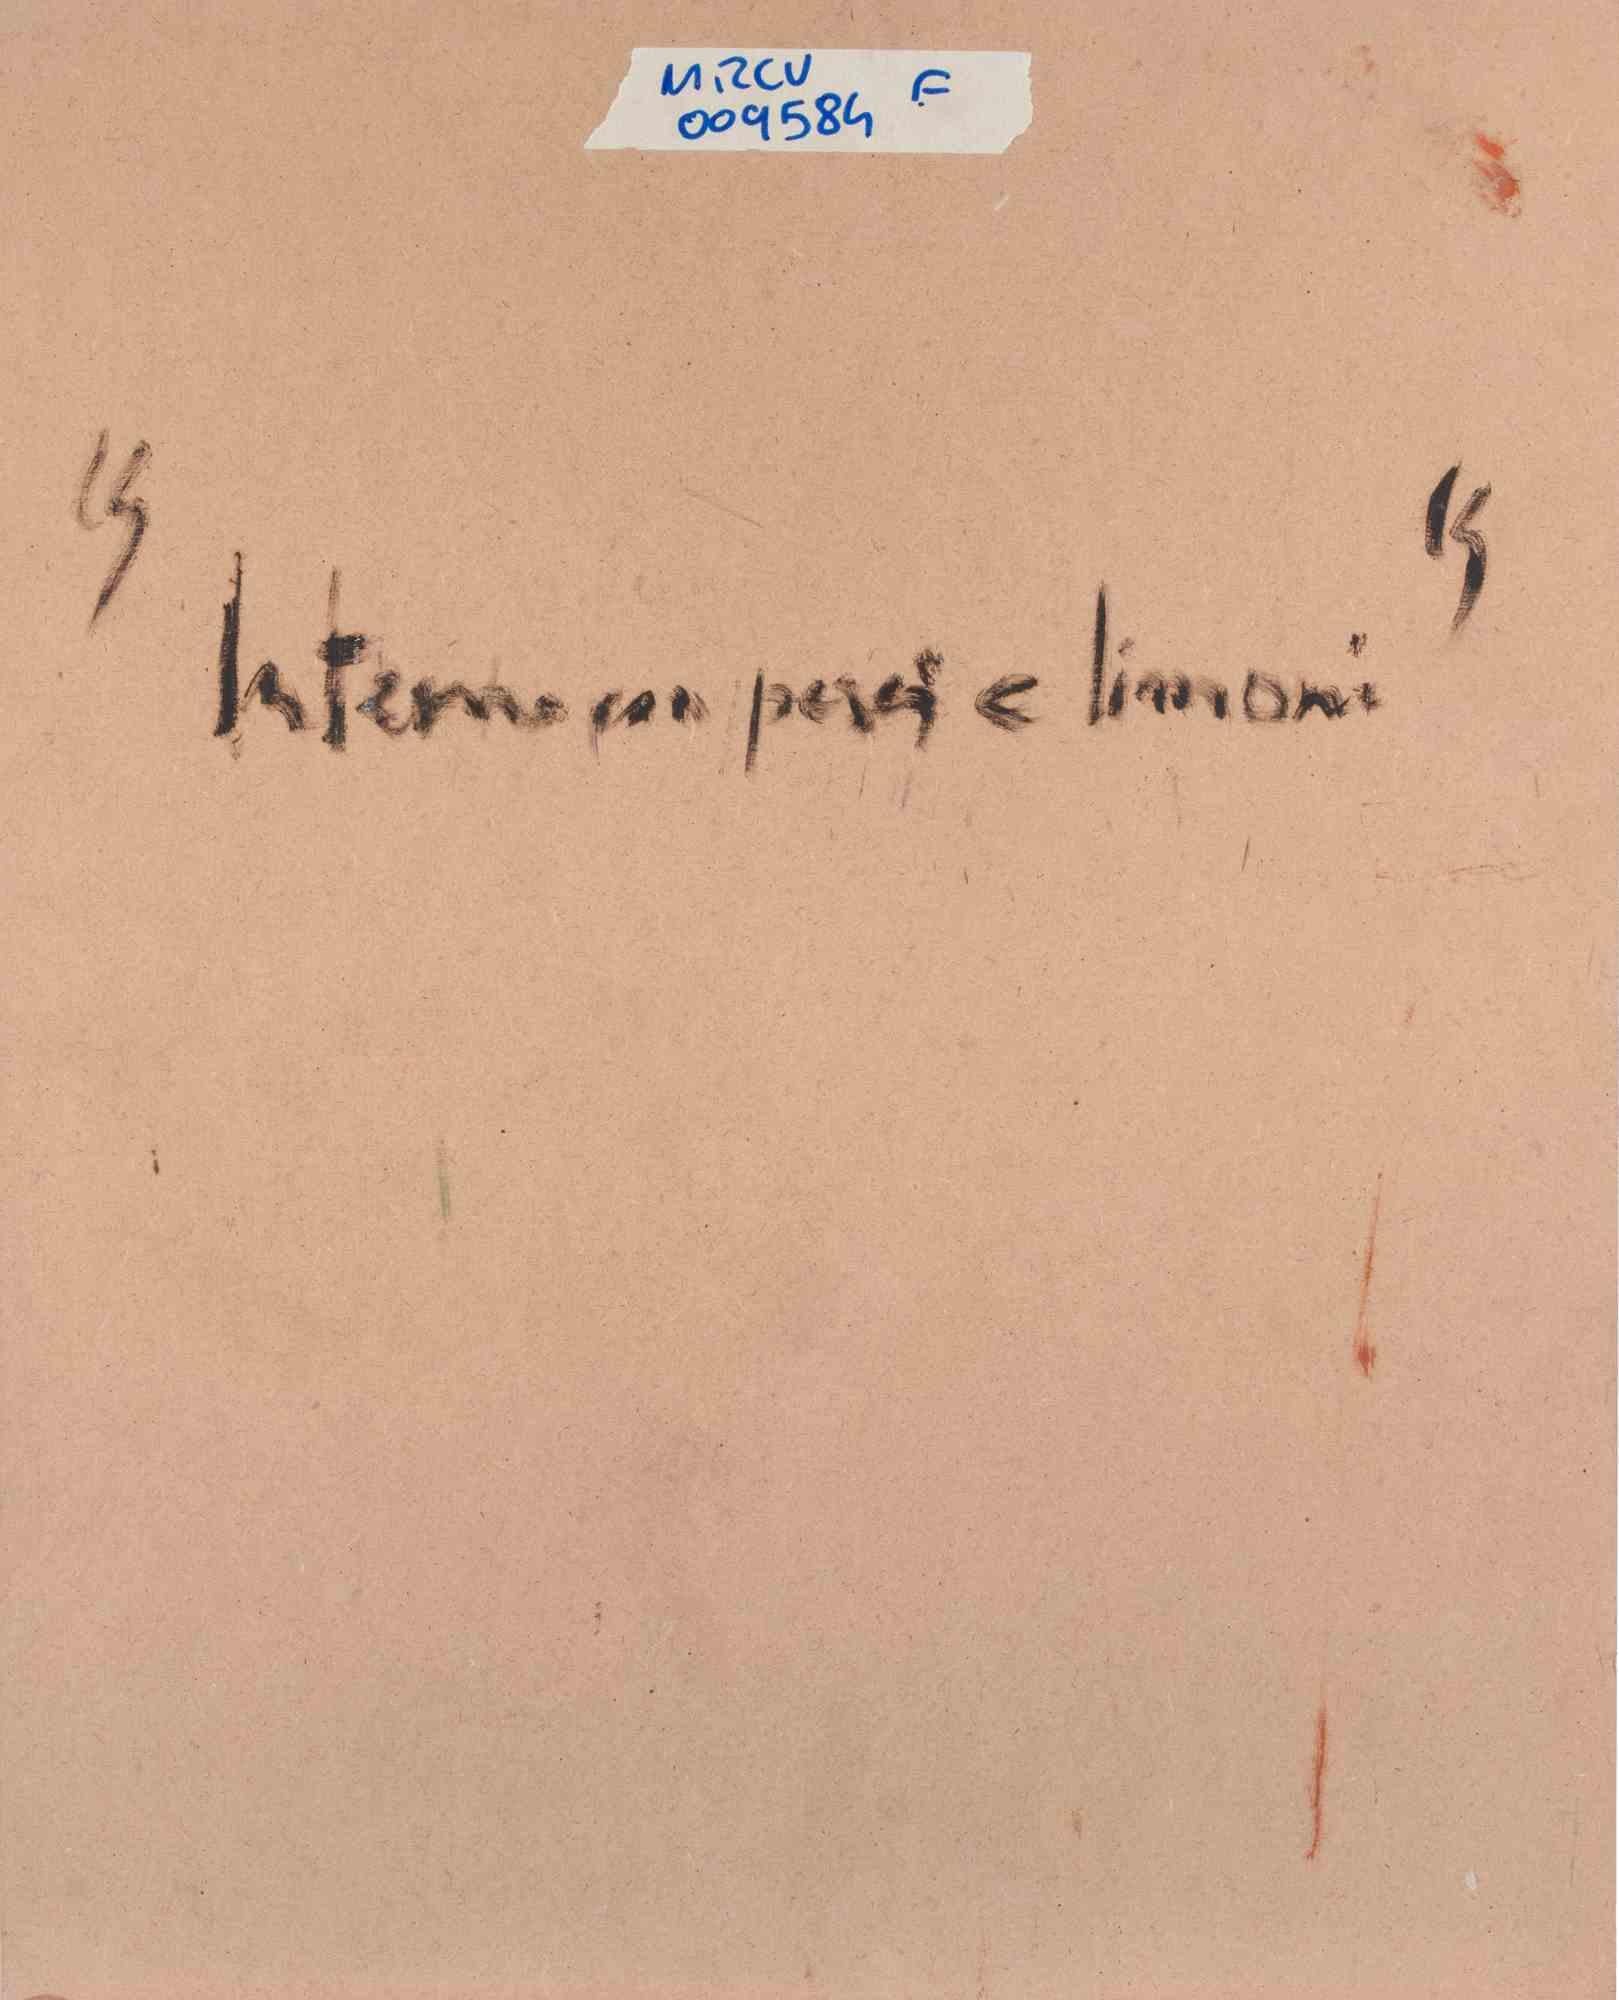 MIRCU F
009584
"Interno con pesci e limoni"